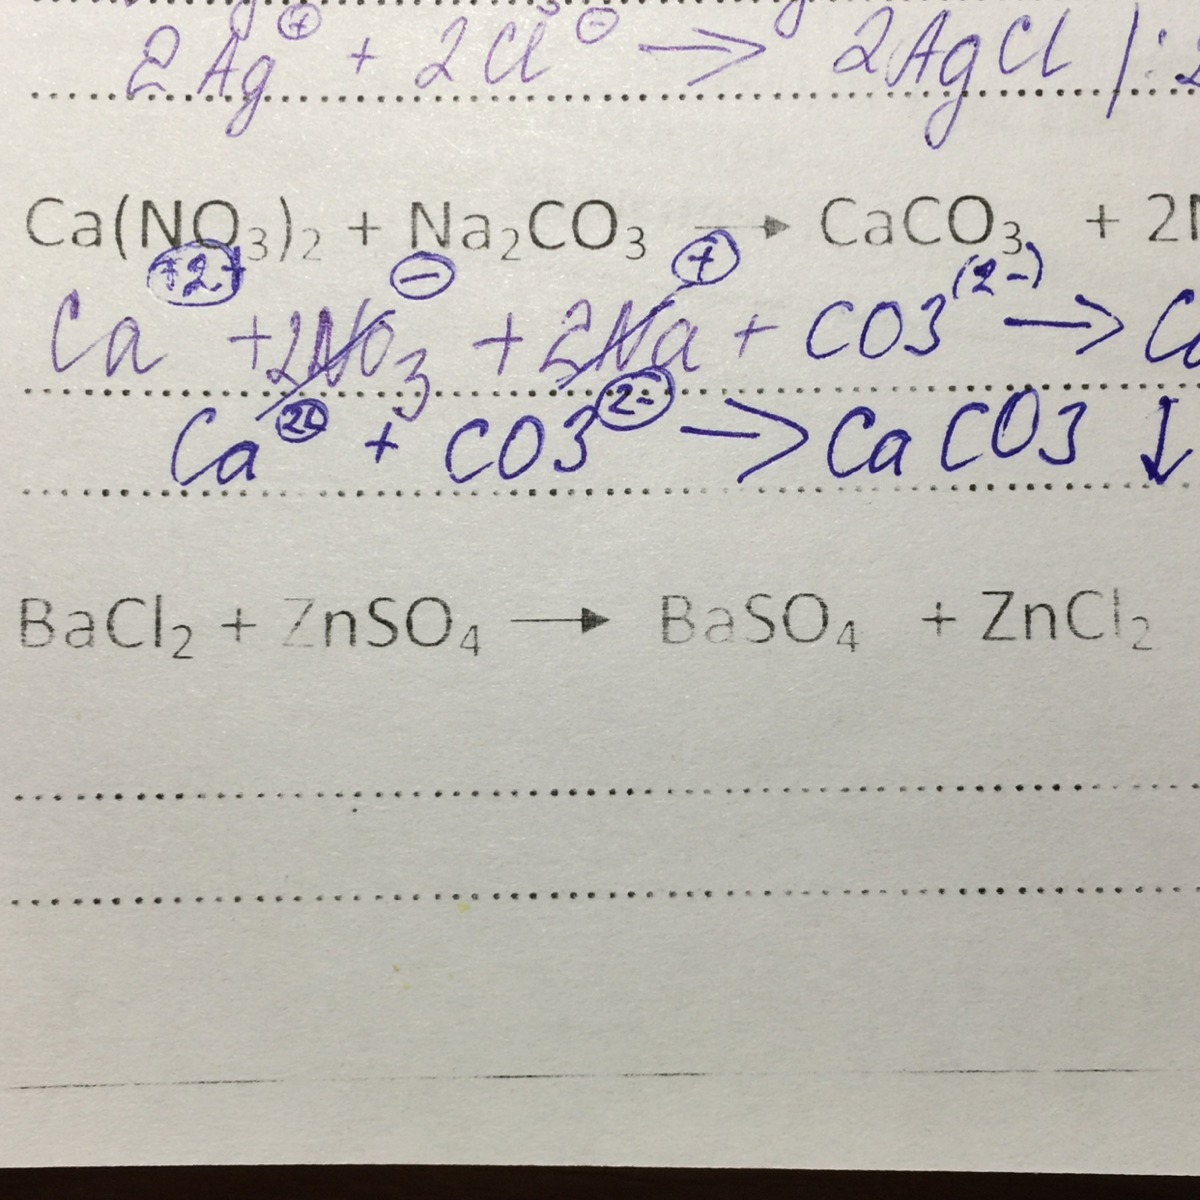 2Ag⁺ + 2Cl⁻ → 2AgCl |:2
Ca(NO₃)₂ + Na₂CO₃ → CaCO₃ + 2N
Ca²⁺ + 2NO₃⁻ + 2Na⁺ + CO3⁽²⁻⁾ → Ca
Ca + CO3²⁻ → CaCO3 ↓
BaCl₂ + ZnSO₄ → BaSO₄ + ZnCl₂